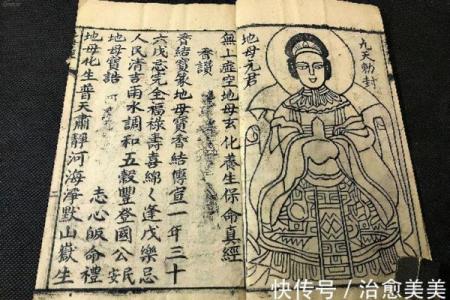 九天勅封
地母元君
無上虛空地母玄化養生保命真經
香讚
香結寶篆地母寶香結傳宣一年三十
六戊忌完全福祿壽喜綿〻逢戊樂忌
人民清吉雨水調和五穀豐登國公民安
地母寶誥 志心皈命禮
地母化生普天肅靜河海淨默山嶽生
快传号/治愈美美